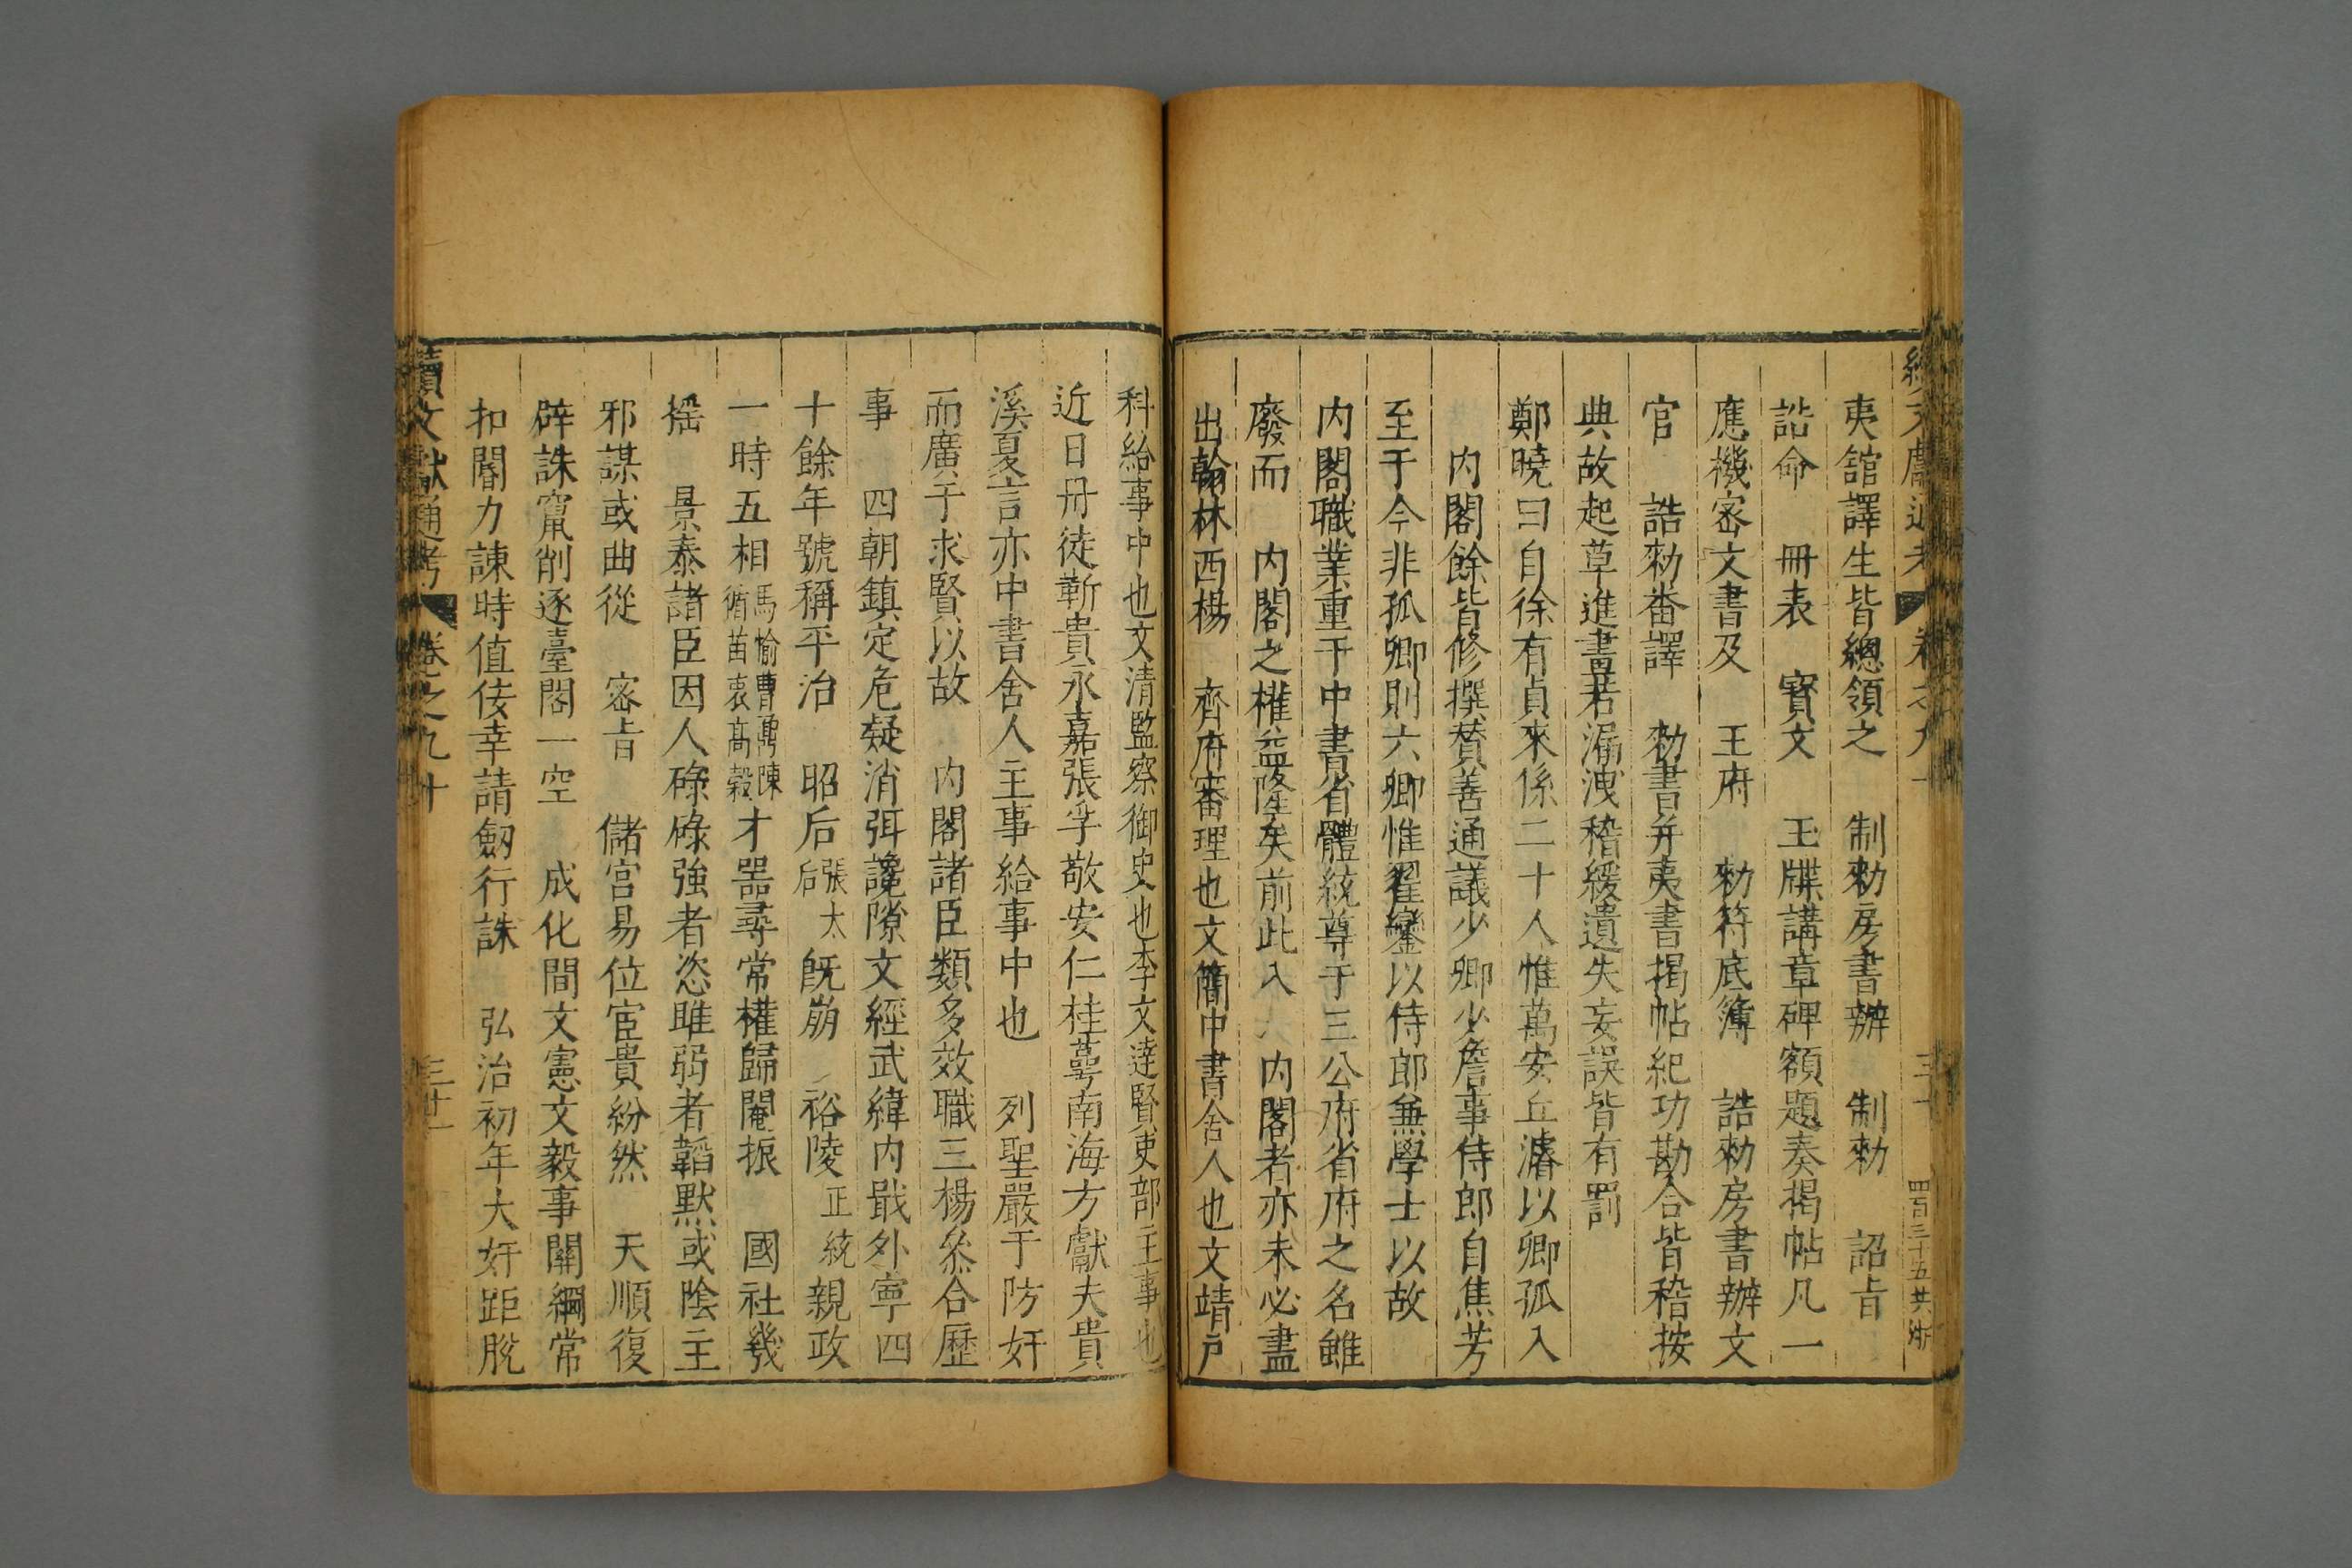 夷舘譯生皆總領之　制勑房書辦　制勑　詔㫖
誥命　冊表　寳文　玉牒講章碑額題奏揭帖凡一
應機宻文書及　王府　勑符底簿　誥勑房書辦文
官　誥勑畨譯　勑書并夷書揭帖紀功勘合皆稽按
典故起草進畫若漏洩稽緩遺失妄誤皆有罰
鄭曉曰自徐有貞來係二十人惟萬安丘濬以卿孤入
内閣餘皆修撰賛善通議少卿少詹事侍郎自焦芳
至于今非孤卿則六卿惟翟鑾以侍郎兼學士以故
内閣職業重于中書省體統尊于三公府省府之名雖
廢而　内閣之權益隆矣前此入　内閣者亦未必盡
出翰林西楊　齊府審理也文簡中書舍人也文靖户
科給事中也文清監察御史也李文逹賢吏部主事也
近日丹徒靳貴永嘉張孚敬安仁桂蕚南海方獻夫貴
溪夏言亦中書舍人主事給事中也　列聖嚴于防奸
而廣于求賢以故　内閣諸臣類多效職三楊叅合歷
事　四朝鎮定危疑消弭讒隙文經武緯内戢外寧四
十餘年號稱平治　昭后張太后既崩　裕陵正統親政
一時五相馬愉曹鼐陳循苗衷高穀才噐尋常權歸閹振　國社幾
揺　景泰諸臣因人碌碌強者恣雎弱者韜黙或隂主
邪謀或曲從　宻㫖　儲宫易位宦貴紛然　天順復
辟誅竄削逐臺閣一空　成化間文憲文毅事關綱常
扣閽力諫時值佞幸請劔行誅　弘治初年大奸距脫
續文獻通考　卷之九十　三十一